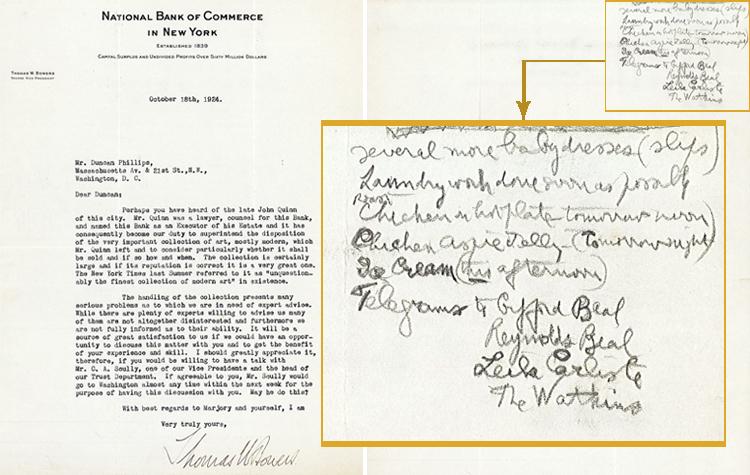 NATIONAL BANK OF COMMERCE
IN NEW YORK
ESTABLISHED 1839
CAPITAL SURPLUS AND UNDIVIDED PROFITS OVER SIXTY MILLION DOLLARS
THOMAS W. BOWERS
SECOND VICE PRESIDENT
October 18th, 1924.
Mr. Duncan Phillips,
Massachusetts Av. & 21st St., N.W.,
Washington, D. C.
Dear Duncan:
Perhaps you have heard of the late John Quinn
of this city. Mr. Quinn was a lawyer, counsel for this Bank,
and named this Bank as an Executor of his Estate and it has
consequently become our duty to superintend the disposition
of the very important collection of art, mostly modern, which
Mr. Quinn left and to consider particularly whether it shall
be sold and if so how and when. The collection is certainly
large and if its reputation is correct it is a very great one.
The New York Times last Summer referred to it as "unquestion-
ably the finest collection of modern art" in existence.
The handling of the collection presents many
serious problems as to which we are in need of expert advice.
While there are plenty of experts willing to advise us many
of them are not altogether disinterested and furthermore we
are not fully informed as to their ability. It will be a
source of great satisfaction to us if we could have an oppor-
tunity to discuss this matter with you and to get the benefit
of your experience and skill. I should greatly appreciate it,
therefore, if you would be willing to have a talk with
Mr. C. A. Scully, one of our Vice Presidents and the head of
our Trust Department. If agreeable to you, Mr. Scully would
go to Washington almost any time within the next week for the
purpose of having this discussion with you. May he do this?
With best regards to Marjory and yourself, I am
Very truly yours,
Thomas W Bowers.
several more baby dresses (slips)
Laundry work done soon as possibly
Roast
Chicken n hot plate tomorrow noon
Chicken aspic Jelly (Tomorrow night)
Ice Cream (this afternoon)
Telegrams to Gifford Beal
Reynolds Beal
Leila Carlisle
The Watkins
several more baby dresses (slips
Laundry work done soon as possibly
Chicken n hot plate tomorrow noon
Chicken aspic Jelly (Tomorrow night)
Ice Cream (this afternoon)
Telegrams to Gifford Beal
Reynolds Beal
Leila Carlisle
The Watkins